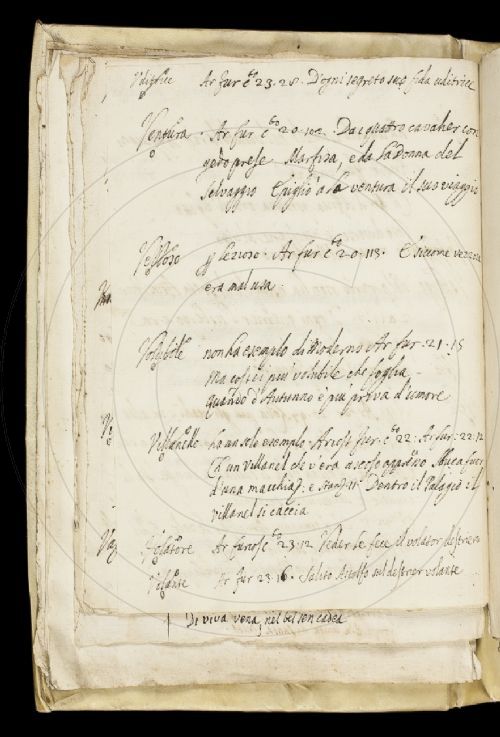 Uditrice Ar fur cto 23. 28. D'ogni segreto suo fida uditrice
Ventura. Ar fur cto 20. 102. Da i quattro cavalier con
gedo prese Marfisa, e da la Donna del
selvaggio e pigliò a la ventura il suo viaggio
Vezzoso p lezioso. Ar fur cto 20. 113. E siccome vezzosa
era mal usa.
Volubile non ha esempio di Moderno Ar fur. 21. 15
Ma costei più volubile che foglia
quando è Autunno è più priva d'umore
Villanello ha un solo esempio. Ariost fur. cto 22. Ar fur. 22. 12
Ch un villanel che v'era ascoso sbuca fuor
d'una macchia e Dentro il Palagio il
villanel si caccia
Volatore Ar furiose cto 23. 12 Veder se fece il volator destriero
Volante Ar fur 23. 16. Salito Astolfo sul destrier volante
Di viva vena, nel bel sen cadea